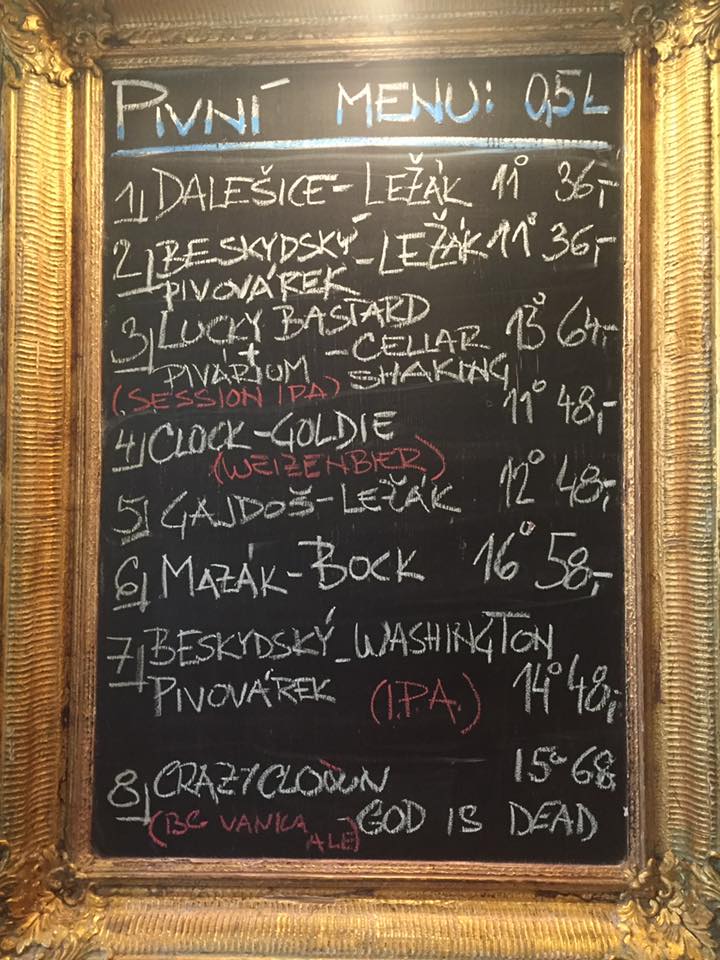 PIVNÍ MENU: 0,5L
1) DALEŠICE - LEŽÁK 11° 36,-
2) BESKYDSKÝ - LEŽÁK 11° 36,-
PIVOVÁREK
3) LUCKY BASTARD
PIVÁRIUM - CELLAR 13° 64,-
SHAKING
(SESSION IPA)
4) CLOCK - GOLDIE 11° 48,-
(WEIZENBIER)
5) GAJDOŠ - LEŽÁK 12° 48,-
6) MAZÁK - BOCK 16° 58,-
7) BESKYDSKÝ - WASHINGTON
PIVOVÁREK (I.P.A.) 14° 48,-
8) CRAZY CLOWN 15° 68,-
(BG VANILA - GOD IS DEAD
ALE)